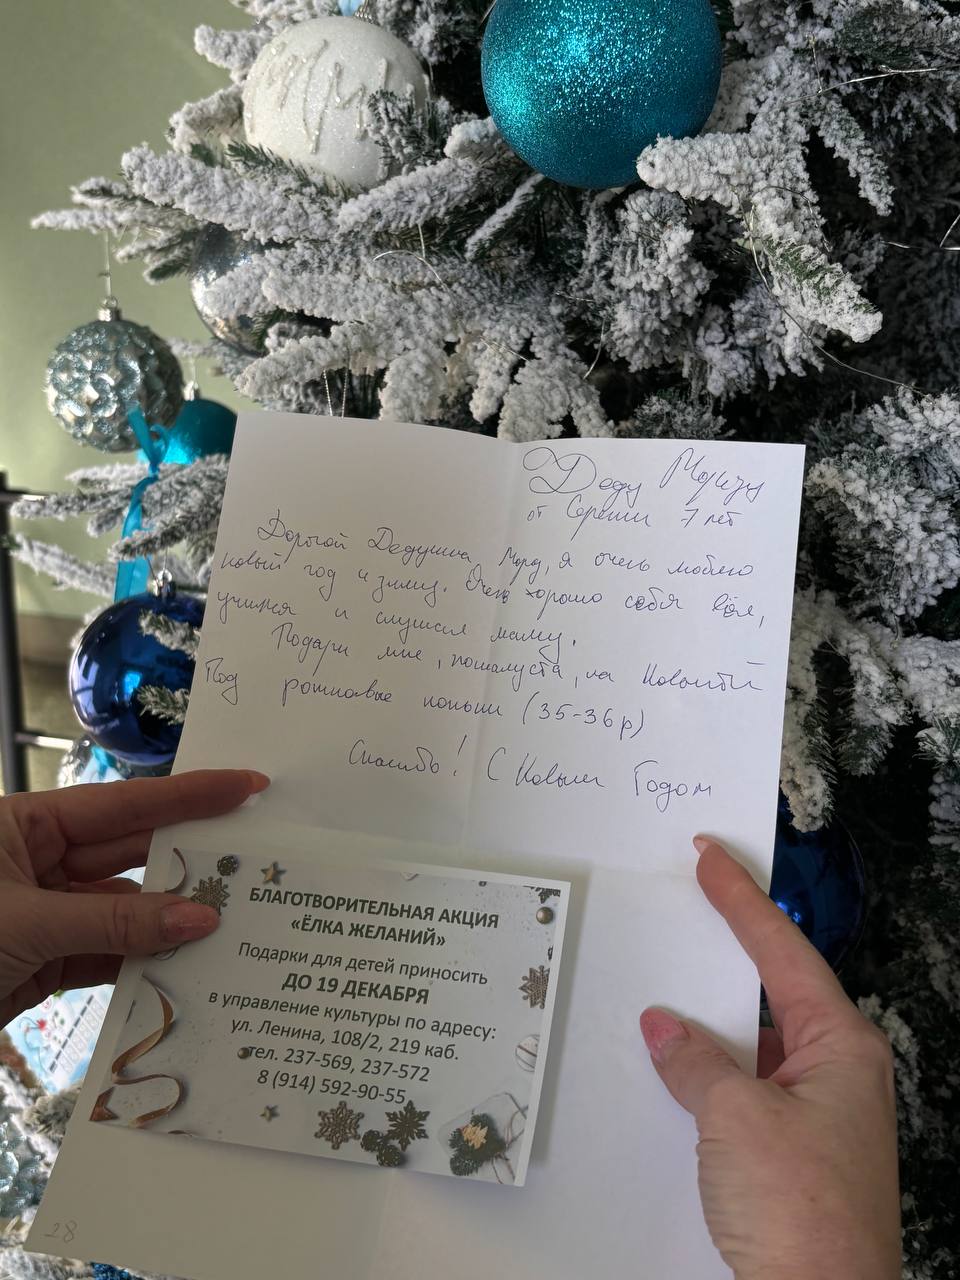 Деду Морозу
от Сережи 7 лет
Дорогой Дедушка Мороз, я очень люблю
новый год и зиму. Очень хорошо себя вёл,
учился и слушал маму.
Подари мне, пожалуйста, на Новый
Год роликовые коньки (35-36 р)
Спасибо! С Новым Годом
БЛАГОТВОРИТЕЛЬНАЯ АКЦИЯ
«ЁЛКА ЖЕЛАНИЙ»
Подарки для детей приносить
ДО 19 ДЕКАБРЯ
в управление культуры по адресу:
ул. Ленина, 108/2, 219 каб.
тел. 237-569, 237-572
8 (914) 592-90-55
28